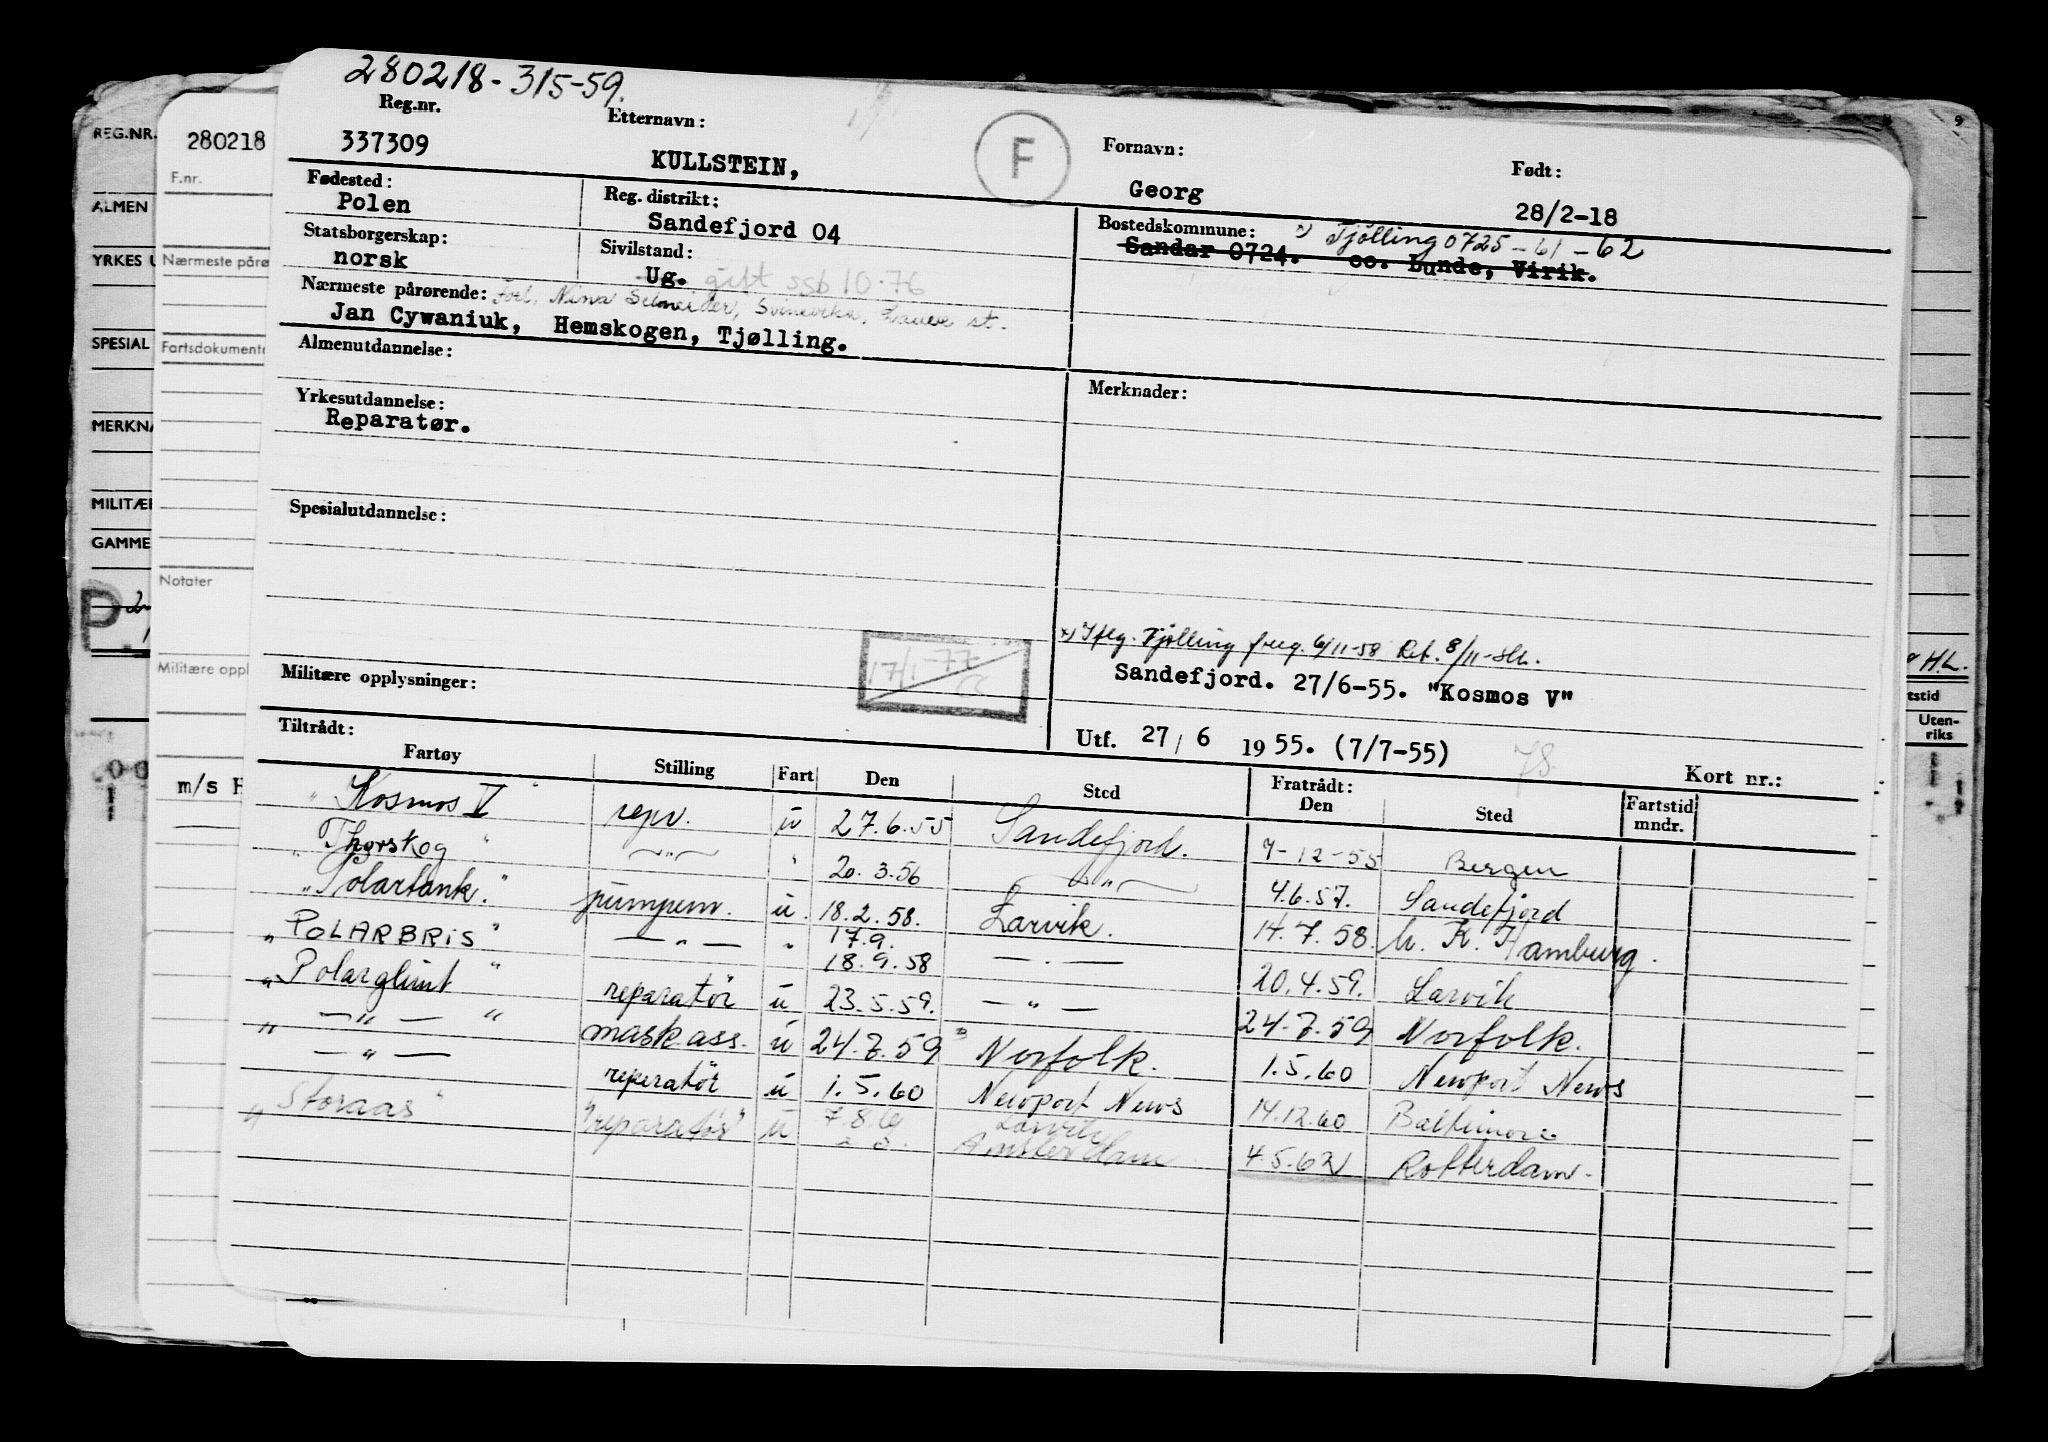 280218-315-59.
Reg.nr.
Etternavn:
Fornavn:
Født:
337309
KULLSTEIN,
F
Georg
28/2-18
Fødested:
Polen
Reg. distrikt:
Sandefjord 04
Bostedskommune:
Tjølling 0725-61-62
Sandar 0724. co. Lunde, Virik.
Statsborgerskap:
norsk
Sivilstand:
Ug. gift ssb 10.76
Nærmeste pårørende: Forl. Nina Schneider, Svinevika, Lauve st.
Jan Cywaniuk, Hemskogen, Tjølling.
Almenutdannelse:
Merknader:
Yrkesutdannelse:
Reparatør.
Spesialutdannelse:
x) Iflg. Tjølling freg. 6/11-58 Ref. 8/11-
Sandefjord. 27/6-55. "Kosmos V"
17/1-77
Militære opplysninger:
Utf. 27/6 1955. (7/7-55)
78
Kort nr.:
Tiltrådt:
Fartøy Stilling Fart Den Sted Fratrådt: Den Sted Fartstid mndr.
"Kosmos V" repr. u 27.6.55 Sandefjord. 7-12-55 Bergen
"Thorskog" —"— " 20.3.56 —"— 4.6.57. Sandefjord
"Polartank." pumpem. u. 18.2.58. Larvik. 14.7.58. Hamburg.
"POLARBRIS" —"— " 17.9. 18.9.58 —"— 20.4.59. Larvik
"Polarglimt" reparatör u 23.5.59. —"— 24.7.59 Norfolk.
" —"— " mask ass. u 24.7.59 Norfolk. 1.5.60 Newport News
—"— reperatör u 1.5.60 Newport News 14.12.60 Baltimore
"Storaas" "reparatör" u 7.8.61 Larvik Amsterdam 4.5.62 Rotterdam.
REG.NR.
ALMEN
YRKES U
SPESIAL
MERKNA
MILITÆR
GAMME
P
280218
F.nr.
Nærmeste pårø
Fartsdokumente
Notater
Militære oppl
m/s H
9
H.L.
tstid
Uten-
riks